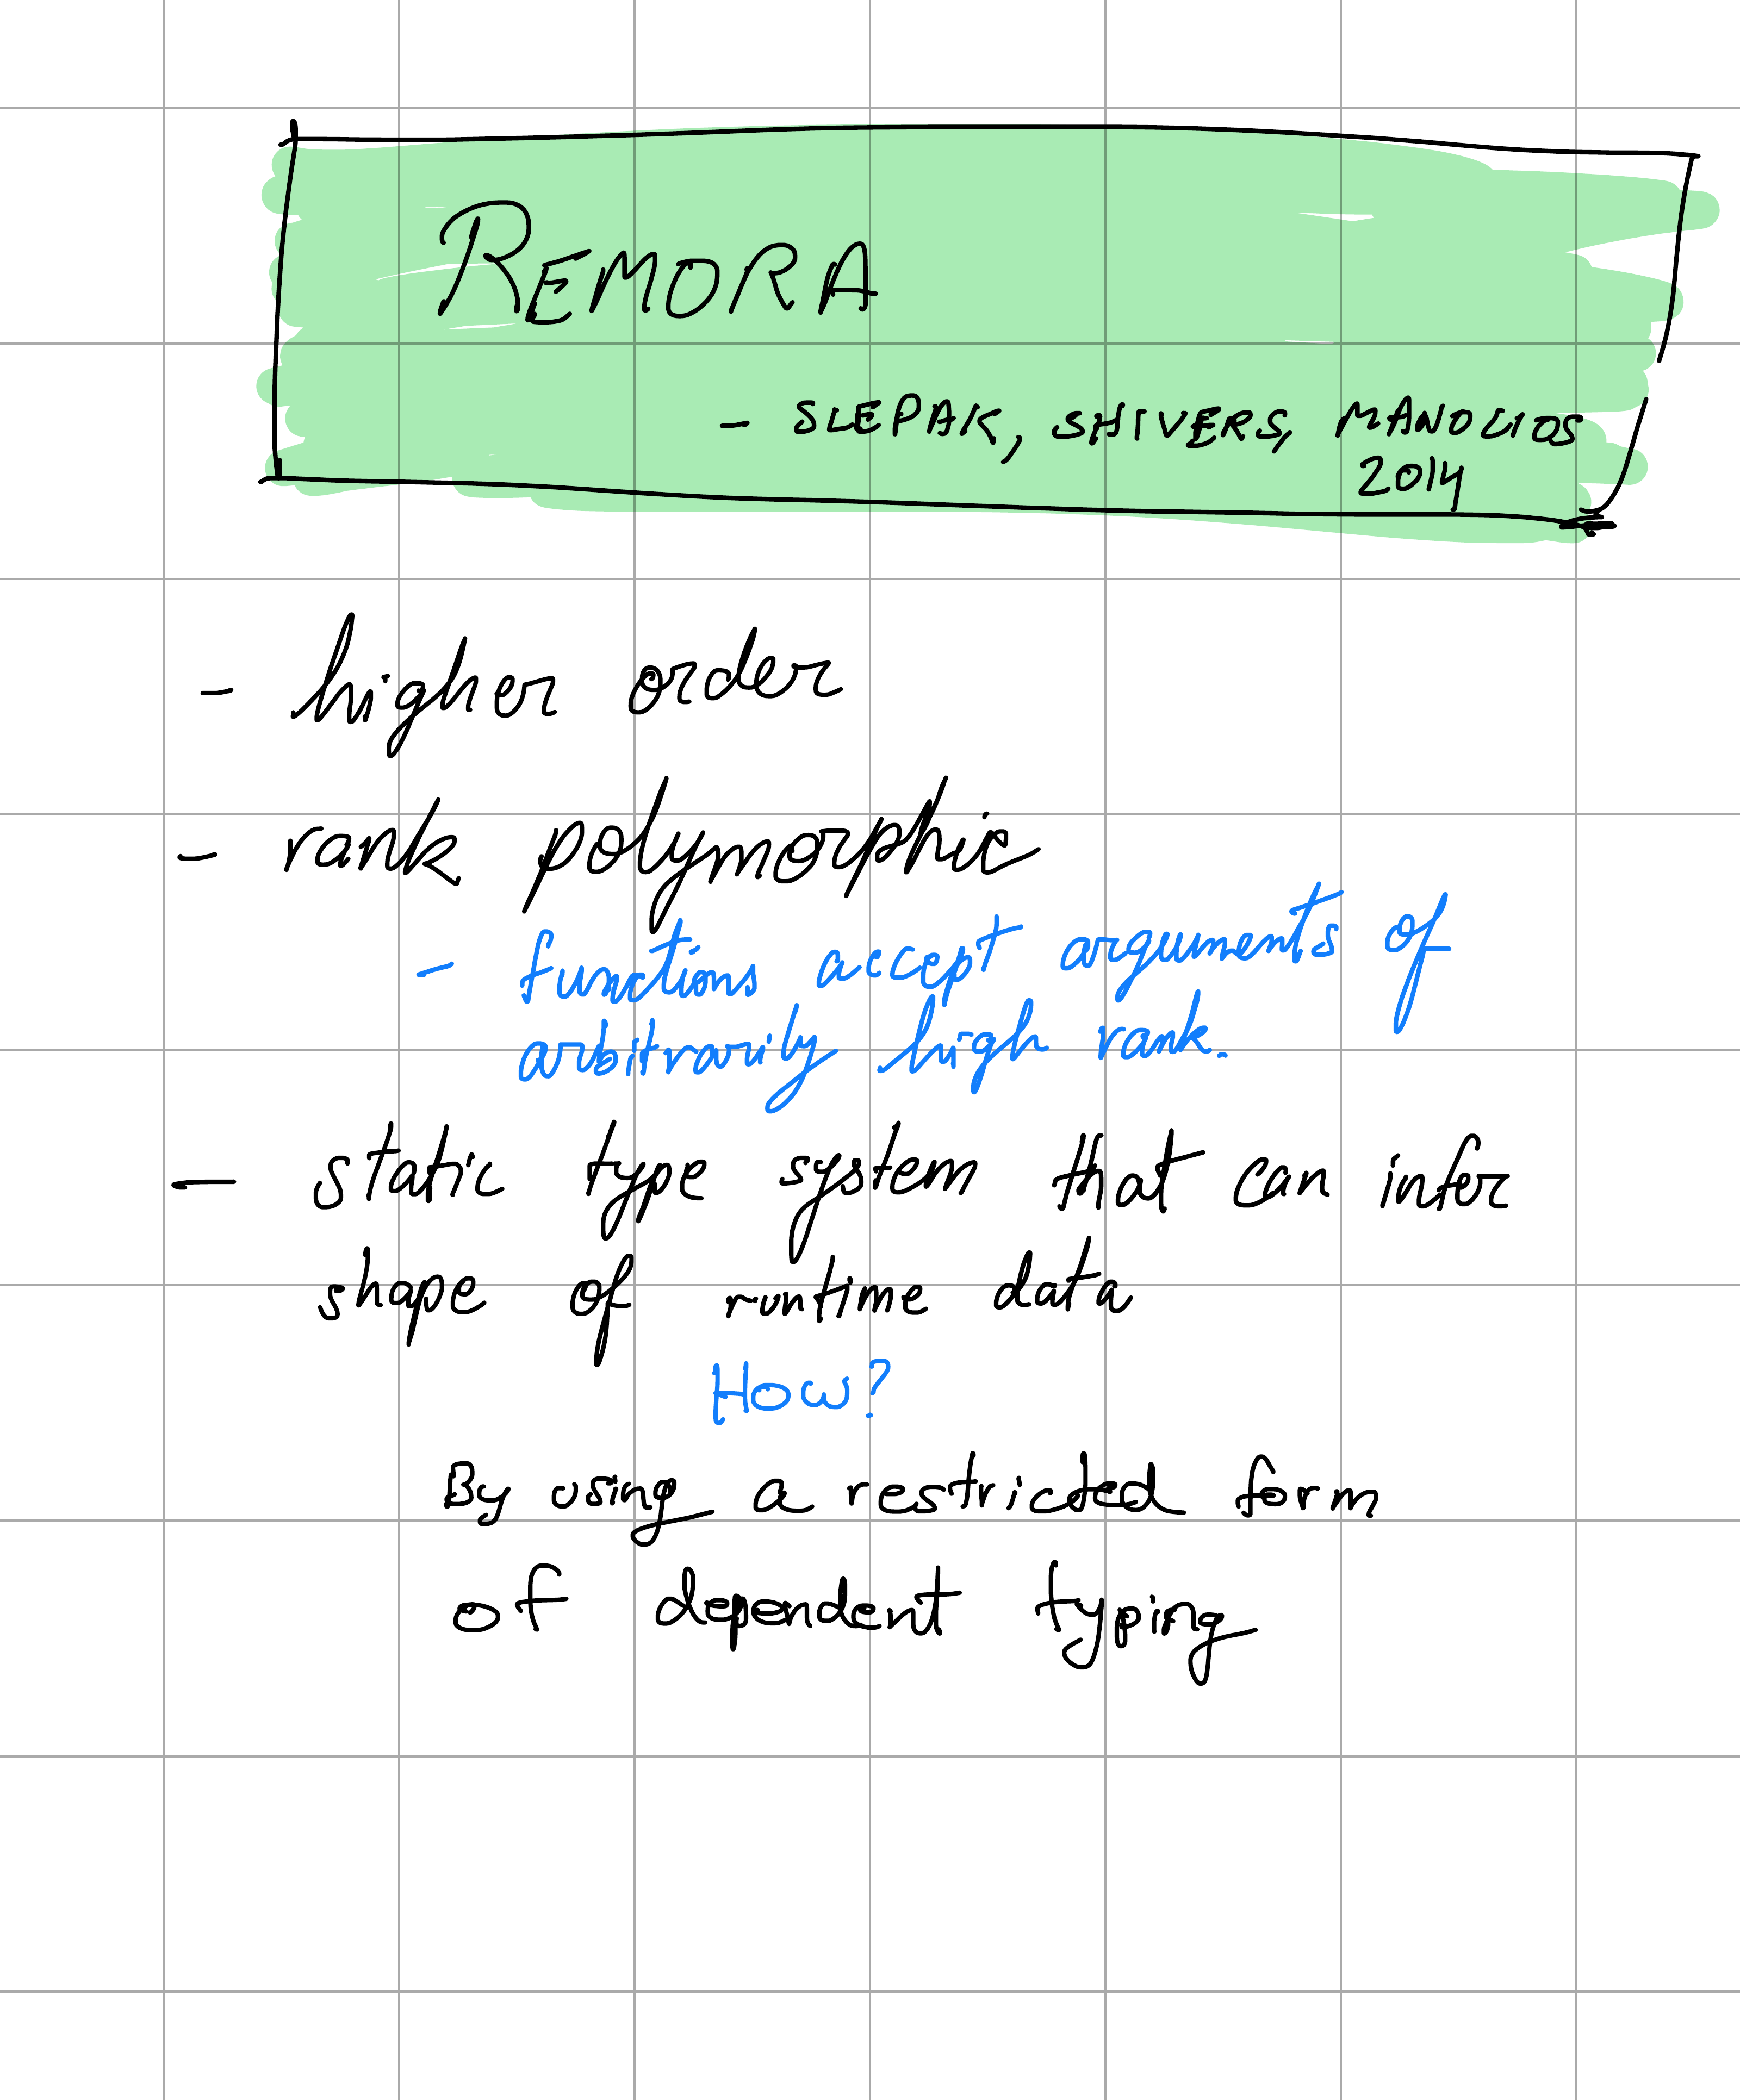 REMORA
- SLEPAK, SHIVERS, MANOLIOS
2014
- higher order
- rank polymorphic
- functions accept arguments of
arbitrarily high rank.
- static type system that can infer
shape of runtime data
How?
By using a restricted form
of dependent typing